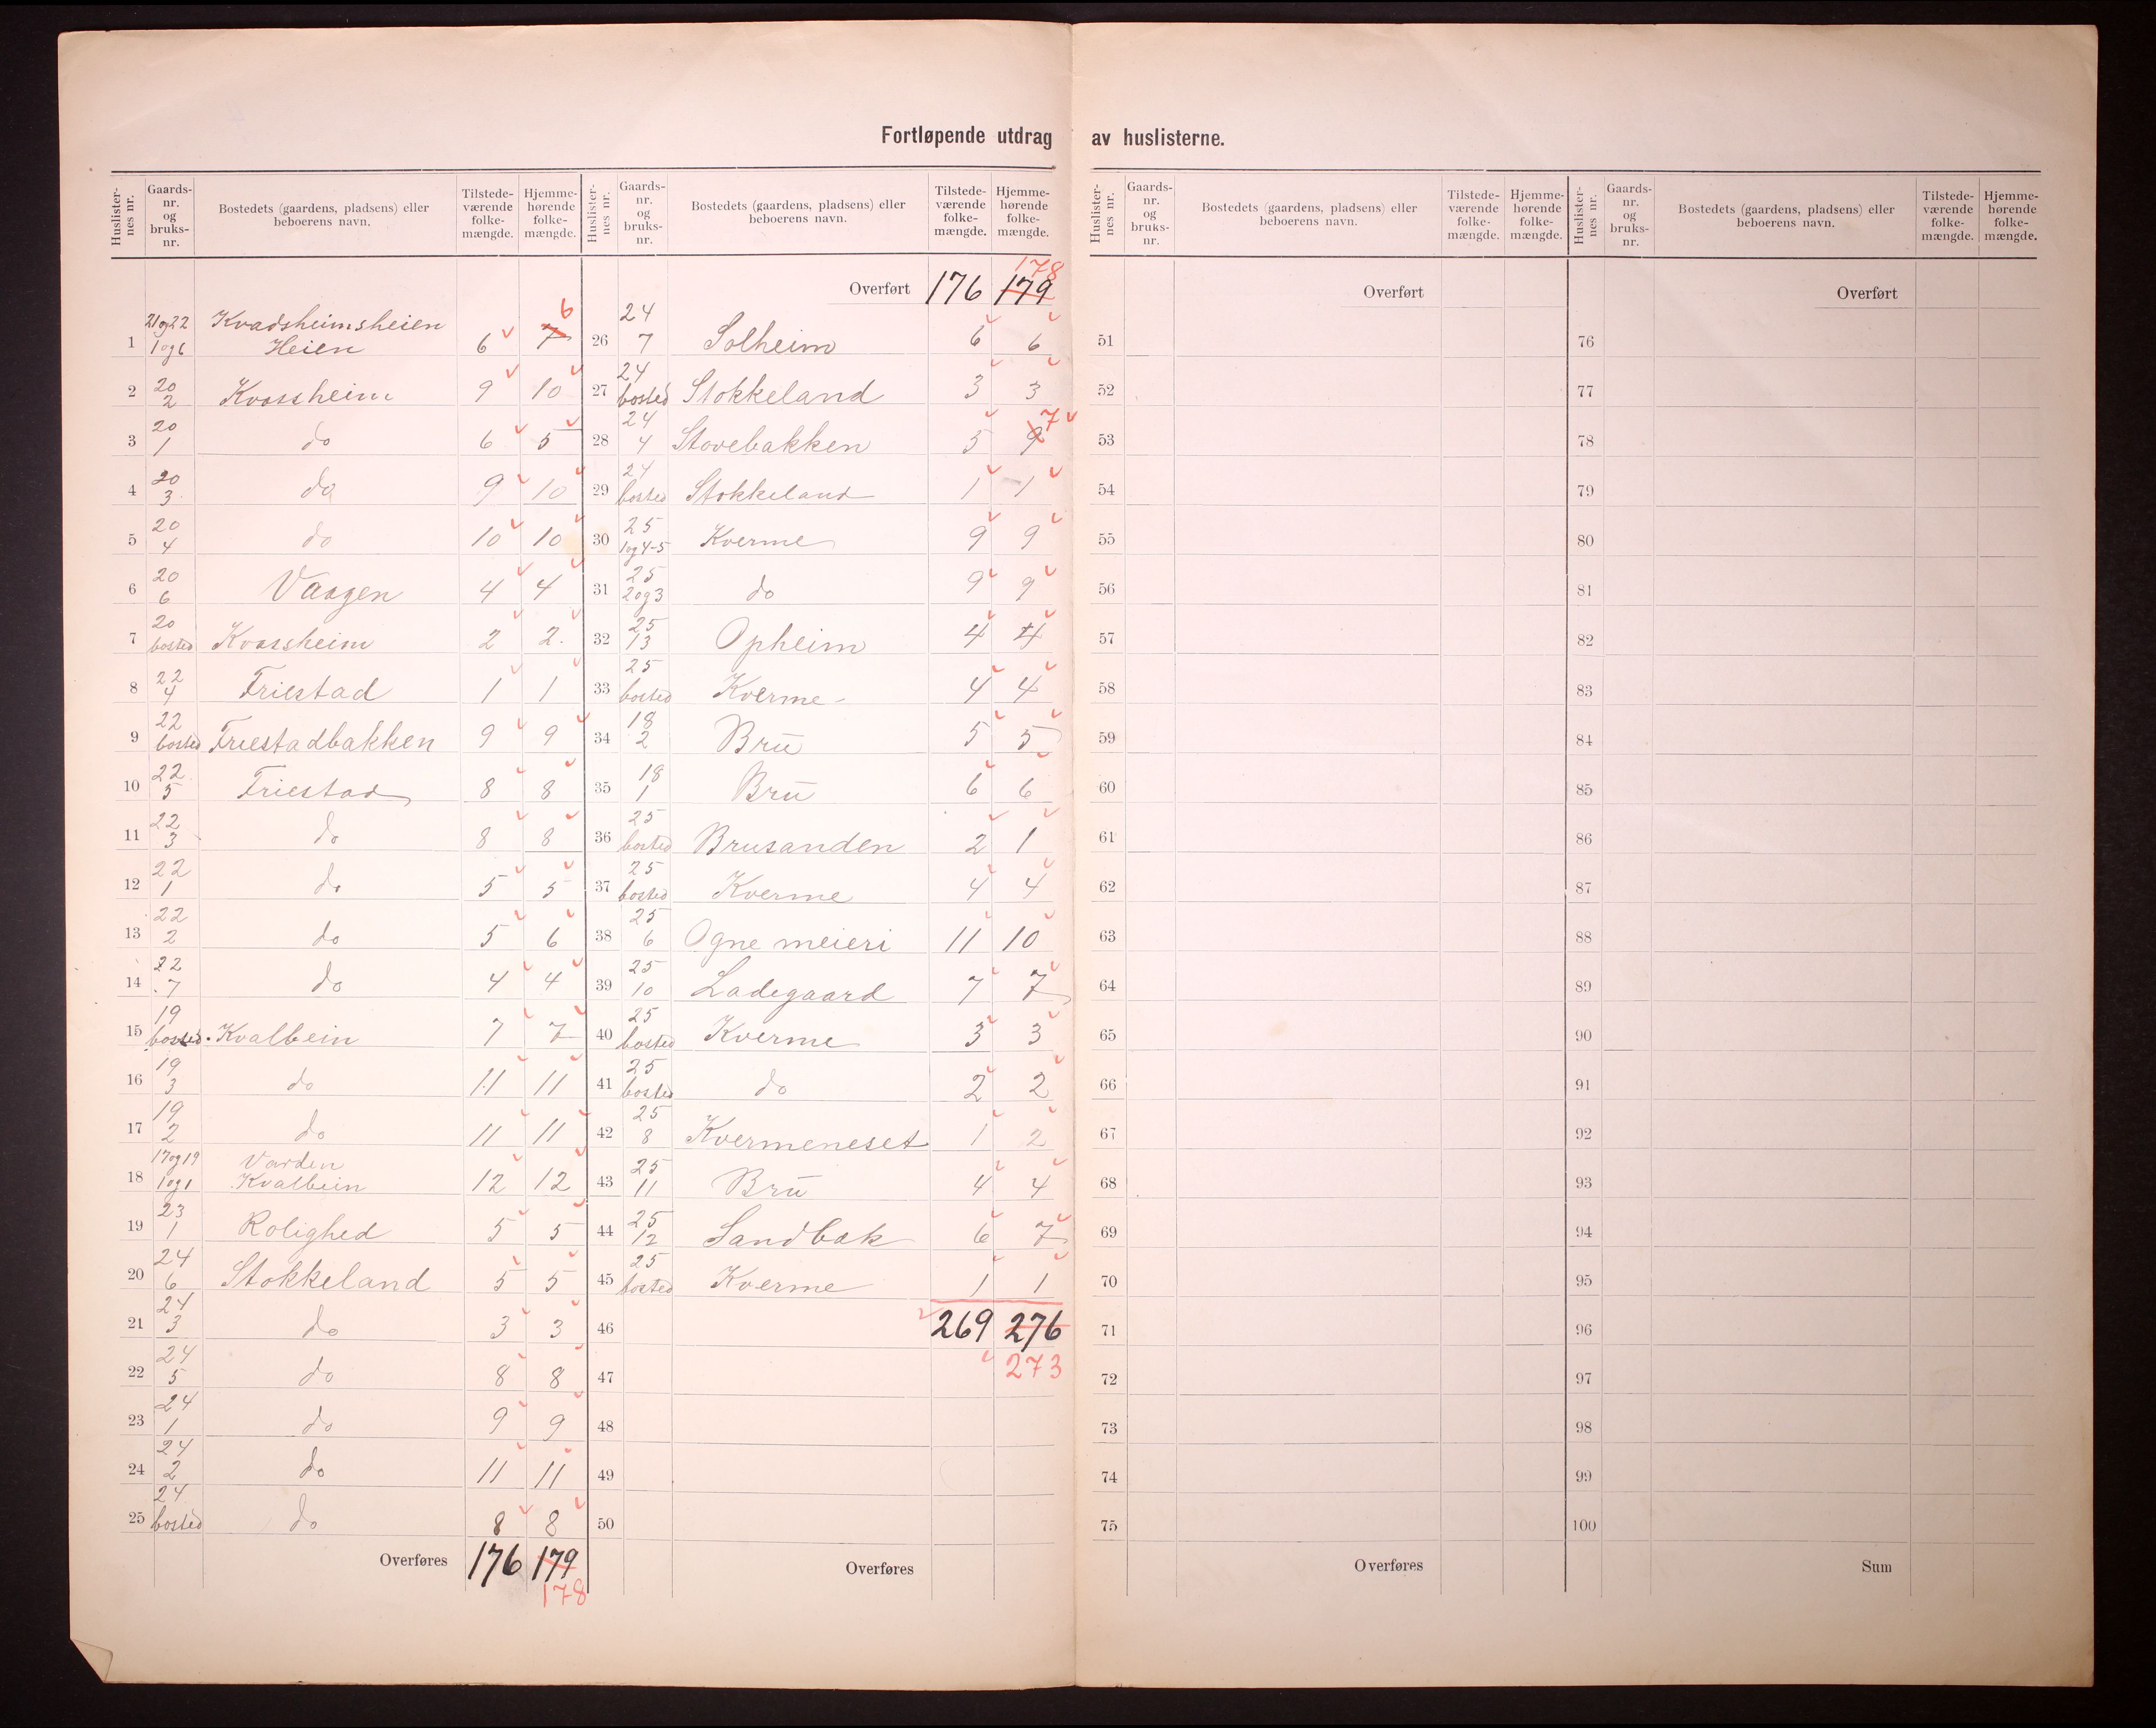 Fortløpende utdrag av huslisterne.
Huslisternes nr. Gaards-nr. og bruks-nr. Bostedets (gaardens, pladsens) eller beboerens navn. Tilstede-værende folke-mængde. Hjemme-hørende folke-mængde.
1 21og22 1og6 Kvadsheimsheien Heien 6 7 6
2 20 2 Kvassheim 9 10
3 20 1 do 6 5
4 20 3 do 9 10
5 20 4 do 10 10
6 20 6 Vaagen 4 4
7 20 bosted Kvassheim 2 2.
8 22 4 Friestad 1 1
9 22 bosted Friestadbakken 9 9
10 22 5 Friestad 8 8
11 22 3 do 8 8
12 22 1 do 5 5
13 22 2 do 5 6
14 22 7 do 4 4
15 19 bosted Kvalbein 7 7
16 19 3 do 11 11
17 19 2 do 11 11
18 17og19 1og1 Varden Kvalbein 12 12
19 23 1 Rolighed 5 5
20 24 6 Stokkeland 5 5
21 24 3 do 3 3
22 24 5 do 8 8
23 24 1 do 9 9
24 24 2 do 11 11
25 24 bosted do 8 8
Overføres 176 179
178
Huslisternes nr. Gaards-nr. og bruks-nr. Bostedets (gaardens, pladsens) eller beboerens navn. Tilstede-værende folke-mængde. Hjemme-hørende folke-mængde.
178
Overført 176 179
26 24 7 Solheim 6 6
27 24 bosted Stokkeland 3 3
28 24 4 Stovebakken 5 9 7
29 24 bosted Stokkeland 1 1
30 25 1og4-5 Kverme 9 9
31 25 2og3 do 9 9
32 25 13 Opheim 4 4
33 25 bosted Kverme 4 4
34 18 2 Brū 5 5
35 18 1 Brū 6 6
36 25 bosted Brusanden 2 1
37 25 bosted Kverme 4 4
38 25 6 Ogne meieri 11 10
39 25 10 Ladegaard 7 7
40 25 bosted Kverme 3 3
41 25 bosted do 2 2
42 25 8 Kvermeneset 1 2
43 25 11 Brū 4 4
44 25 12 Sandbak 6 7
45 25 bosted Kverme 1 1
46 269 276
47 273
48
49
50
Overføres
Huslisternes nr. Gaards-nr. og bruks-nr. Bostedets (gaardens, pladsens) eller beboerens navn. Tilstede-værende folke-mængde. Hjemme-hørende folke-mængde.
Overført
51
52
53
54
55
56
57
58
59
60
61
62
63
64
65
66
67
68
69
70
71
72
73
74
75
Overføres
Huslisternes nr. Gaards-nr. og bruks-nr. Bostedets (gaardens, pladsens) eller beboerens navn. Tilstede-værende folke-mængde. Hjemme-hørende folke-mængde.
Overført
76
77
78
79
80
81
82
83
84
85
86
87
88
89
90
91
92
93
94
95
96
97
98
99
100
Sum